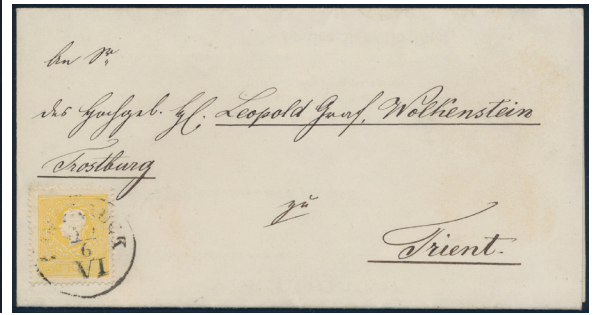 An Sr
des Hochgeb. H. Leopold Graf, Wolkenstein
Trostburg
zu
Trient.
6
VI